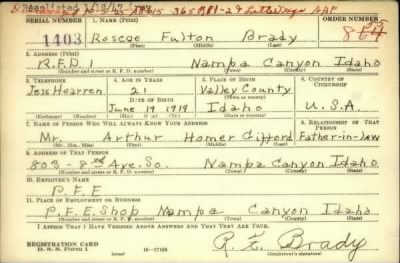 SERIAL NUMBER 1. NAME (Print) ORDER NUMBER
1403 Roscoe Fulton Brady 864
(First) (Middle) (Last)
2. ADDRESS (Print)
R.F.D. 1 Nampa Canyon Idaho
(Number and street or R. F. D. number) (Town) (County) (State)
3. TELEPHONE 4. AGE IN YEARS 5. PLACE OF BIRTH 6. COUNTRY OF CITIZENSHIP
Jess Hearren 21 Valley County
DATE OF BIRTH (Town or county)
June 19 1919 Idaho U.S.A
(Exchange) (No.) (Mo.) (Day) (Yr.) (State or country)
7. NAME OF PERSON WHO WILL ALWAYS KNOW YOUR ADDRESS 8. RELATIONSHIP OF THAT PERSON
Mr. Arthur Homer Clifford Father-in-law
(Mr., Mrs., Miss) (First) (Middle) (Last)
9. ADDRESS OF THAT PERSON
803 - 8th Ave. So. Nampa Canyon Idaho
(Number and street or R. F. D. number) (Town) (County) (State)
10. EMPLOYER'S NAME
P.F.E
11. PLACE OF EMPLOYMENT OR BUSINESS
P.F.E. Shop Nampa Canyon Idaho
(Number and street or R. F. D. number) (Town) (County) (State)
I AFFIRM THAT I HAVE VERIFIED ABOVE ANSWERS AND THAT THEY ARE TRUE.
REGISTRATION CARD
D. S. S. Form 1 16-17105 R. F. Brady
(Registrant's signature)